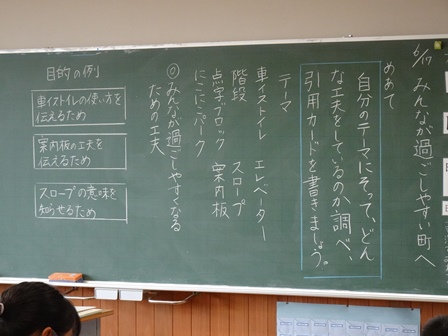 6/17 みんなが過ごしやすい町へ
めあて
自分のテーマにそって、どん
な工夫をしているのか調べ、
引用カードを書きましょう。
テーマ
車イストイレ エレベーター
階段 スロープ
点字ブロック 案内板
にこにこパーク
◎みんなが過ごしやすくなる
ための工夫
目的の例
車イストイレの使い方を
伝えるため
案内板の工夫を
伝えるため
スロープの意味を
知らせるため